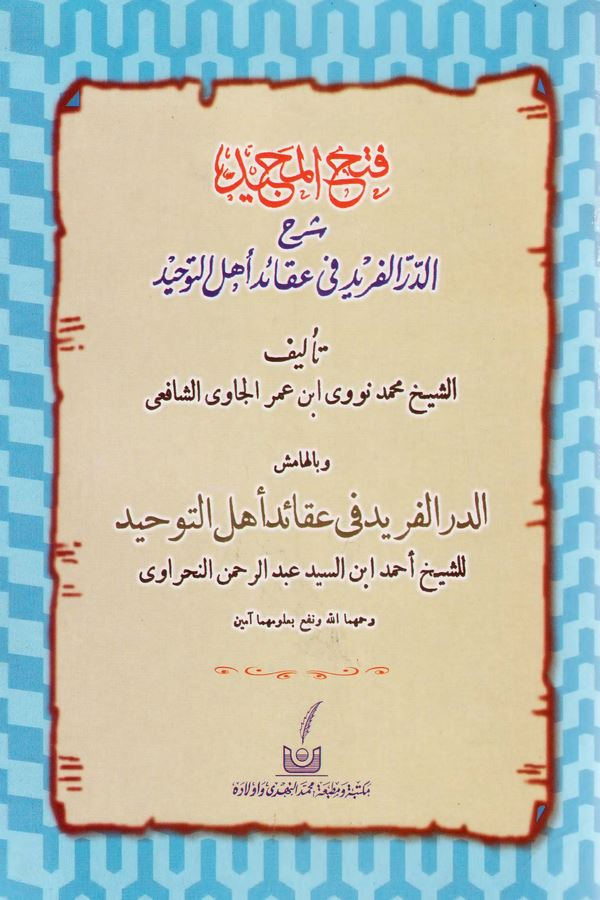 فتح المجيد
شرح
الدّرّ الفريد في عقائد أهل التوحيد
تأليف
الشيخ محمد نووى ابن عمر الجاوى الشافعى
وبالهامش
الدر الفريد فى عقائد أهل التوحيد
للشيخ أحمد ابن السيد عبد الرحمن النحراوى
رحمهما الله ونفع بعلومهما آمين
مكتبة ومطبعة محمد النهدى وأولاده